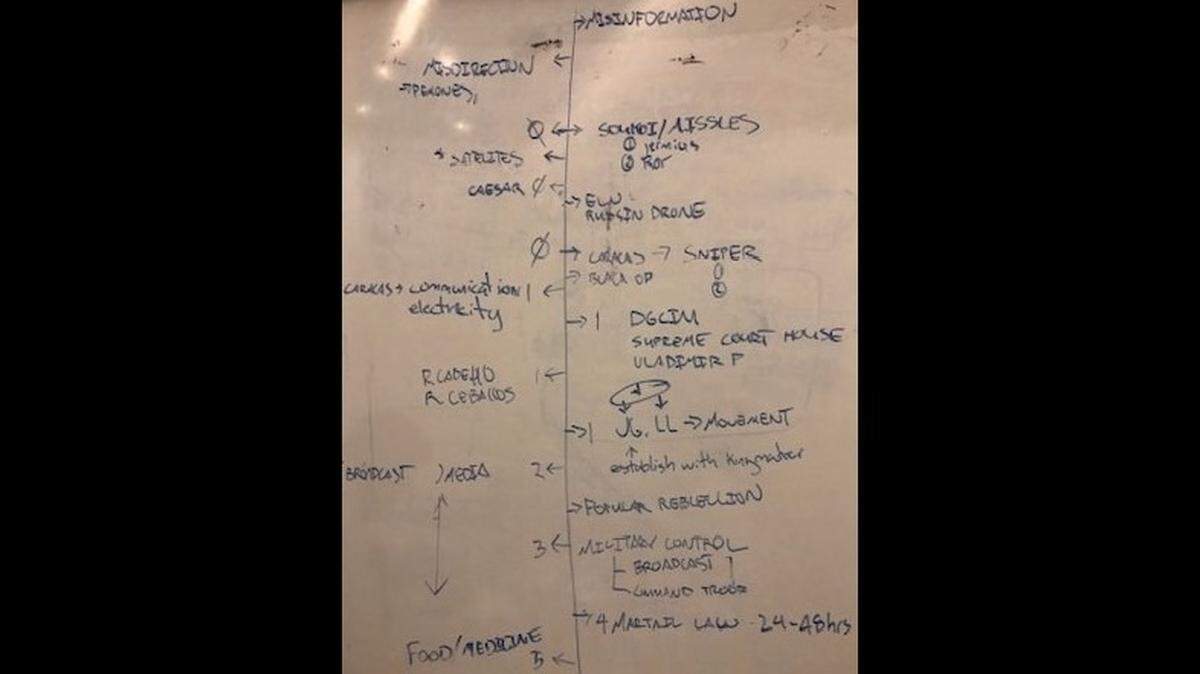 → MISINFORMATION
MISDIRECTION ←
→ PEMONES,
Ø ↔ /MISSLES
①
②
* SATELITES ←
CAESAR Ø ←
→ ELN
DRONE
Ø → CARACAS → SNIPER
→ BLACK OP ①
②
CARACAS → communication 1 ←
electricity
→ 1 DGCIM
SUPREME COURT HOUSE
VLADIMIR P
1 ←
R CEBALLOS
→ 1 JG, LL → MOVEMENT
establish with
BROADCAST MEDIA 2 ←
→ POPULAR REBLELLION
3 ← MILITARY CONTROL
BROADCAST
COMMAND TROOP
→ 4 MARTAIL LAW - 24-48hrs
FOOD/MEDICINE
5 ←